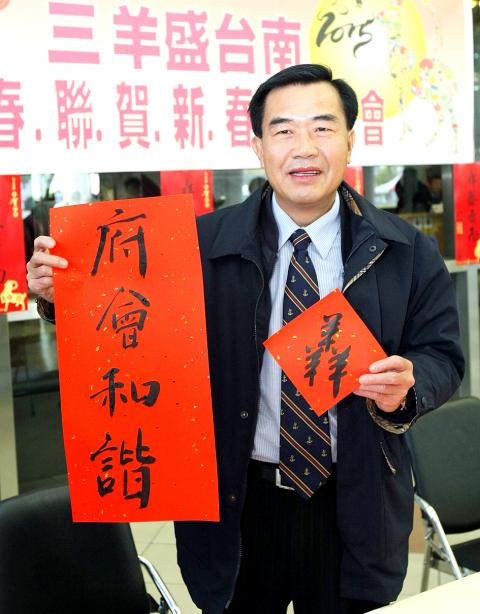 2015
三羊盛台南
春.聯.賀.新.春 會
府會和諧
羴